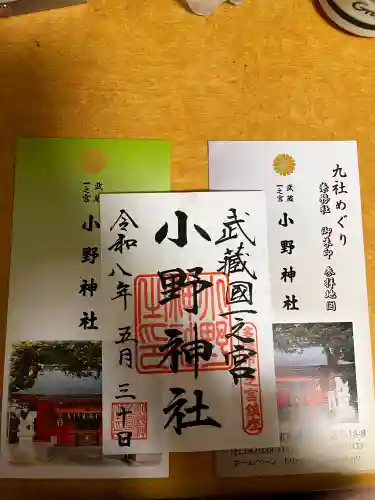 武蔵
一之宮
小野神社
武蔵國一之宮
小野神社
令和八年 五月 三十日
九社めぐり
兼務社 御朱印 参拝地図
武蔵
一之宮
小野神社
ホームページ